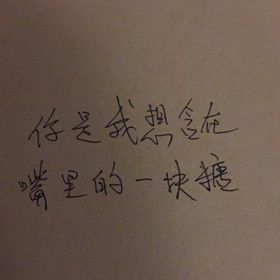 你是我想含在
嘴里的一块糖